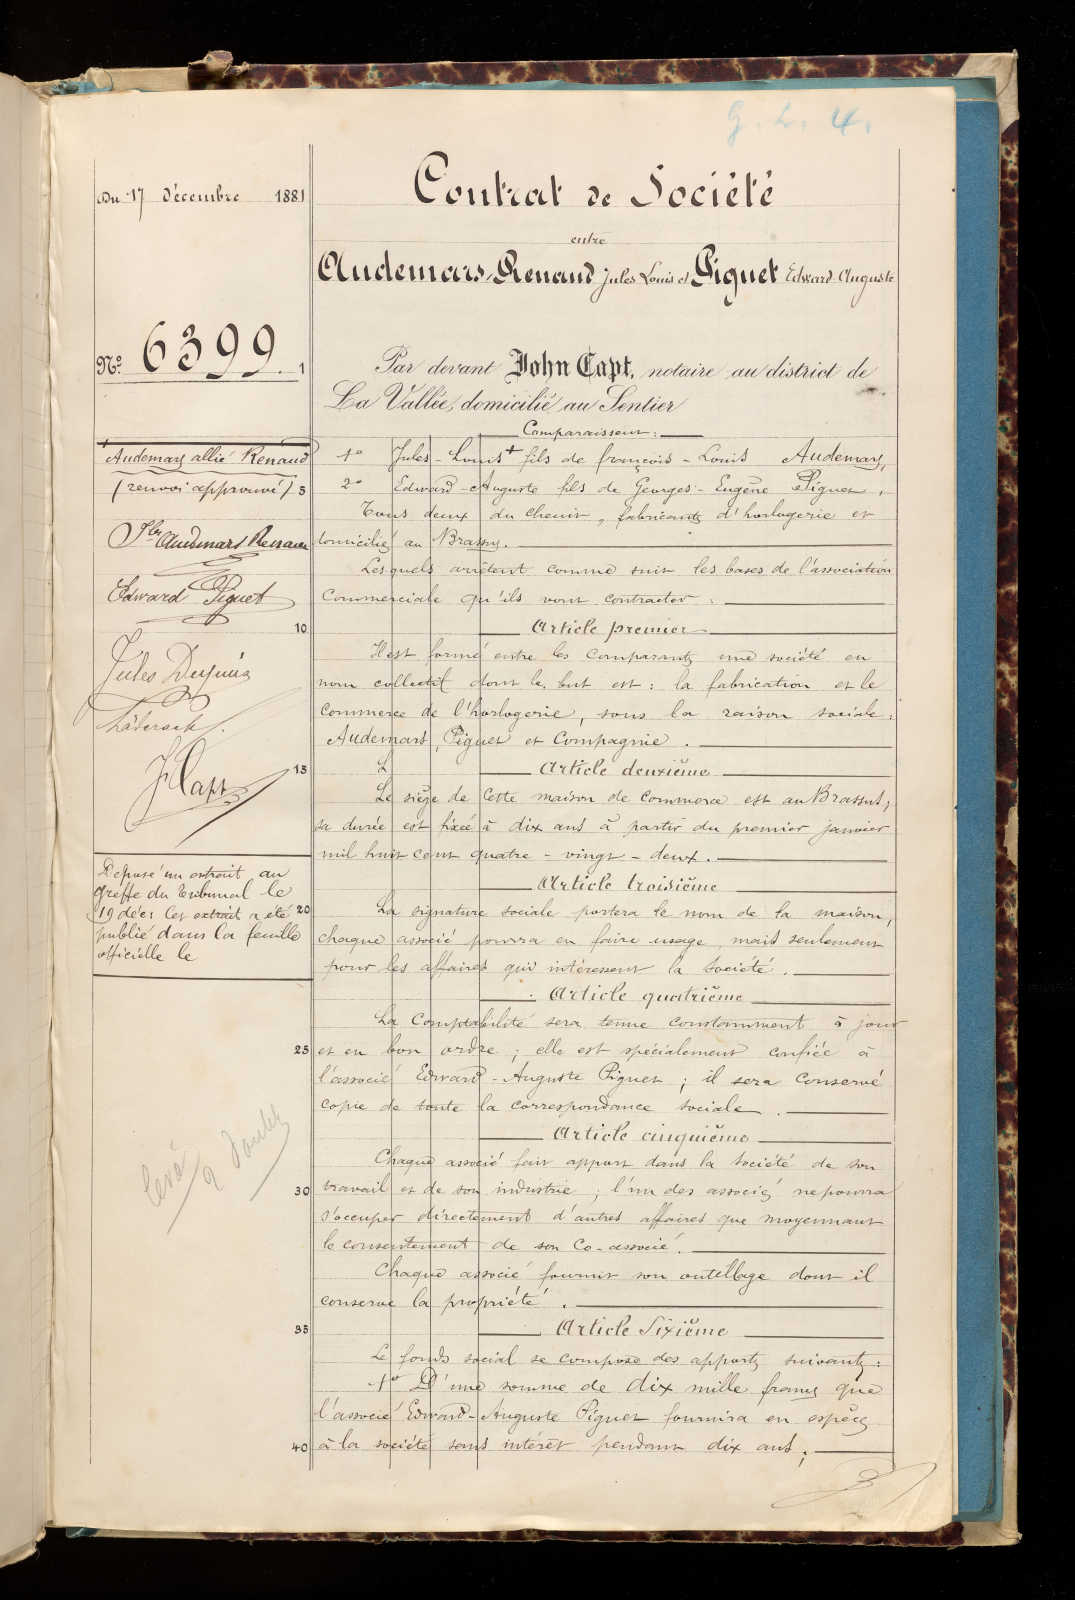 G. L. 4.
Du 17 Décembre 1881
Contrat de Société
entre
Audemars, Renaud Jules Louis et Piguet Edward Auguste
No. 6399.
1
Par devant John Capt, notaire au district de
La Vallée, domicilié au Sentier
Comparaissent:
Audemars allié Renaud
1o Jules-Louis + fils de françois-Louis Audemars,
(renvoi approuvé) 5
2o Edward-Auguste fils de Georges-Eugène Piguet,
Tous deux du Chenit, fabricants d'horlogerie et
Jles Audemars Renaud
domiciliés au Brassus.
Lesquels arrêtent comme suit les bases de l'association
Edward Piguet
Commerciale qu'ils vont contracter:
10
Article premier
Il est formé entre les Comparants une société en
Jules
nom collectif dont le but est: la fabrication et le
Commerce de l'horlogerie, sous la raison sociale:
Audemars, Piguet et Compagnie.
J Capt
15
L
Article deuxième
Le siège de cette maison de commerce est au Brassus,
sa durée est fixée à dix ans à partir du premier janvier
mil huit cent quatre-vingt-deux.
Article troisième
Déposé un extrait au
greffe du Tribunal le
19 déc 81 Cet extrait a été
publié dans la feuille
officielle le
20
La signature sociale portera le nom de la maison,
chaque associé pourra en faire usage, mais seulement
pour les affaires qui intéressent la Société.
Article quatrième
La Comptabilité sera tenue constamment à jour
25
et en bon ordre; elle est spécialement confiée à
l'associé Edward-Auguste Piguet; il sera conservé
copie de toute la correspondance sociale.
Article cinquième
Chaque associé fait apport dans la Société de son
30
travail et de son industrie; l'un des associés ne pourra
s'occuper directement d'autres affaires que moyennant
le consentement de son Co-associé.
Chaque associé fournit son outillage dont il
conserve la propriété.
35
Article Sixième
Le fonds social se compose des apports suivants:
1o D'une somme de dix mille francs que
l'associé Edward-Auguste Piguet fournira en espèces
40
à la société sans intérêt pendant dix ans;